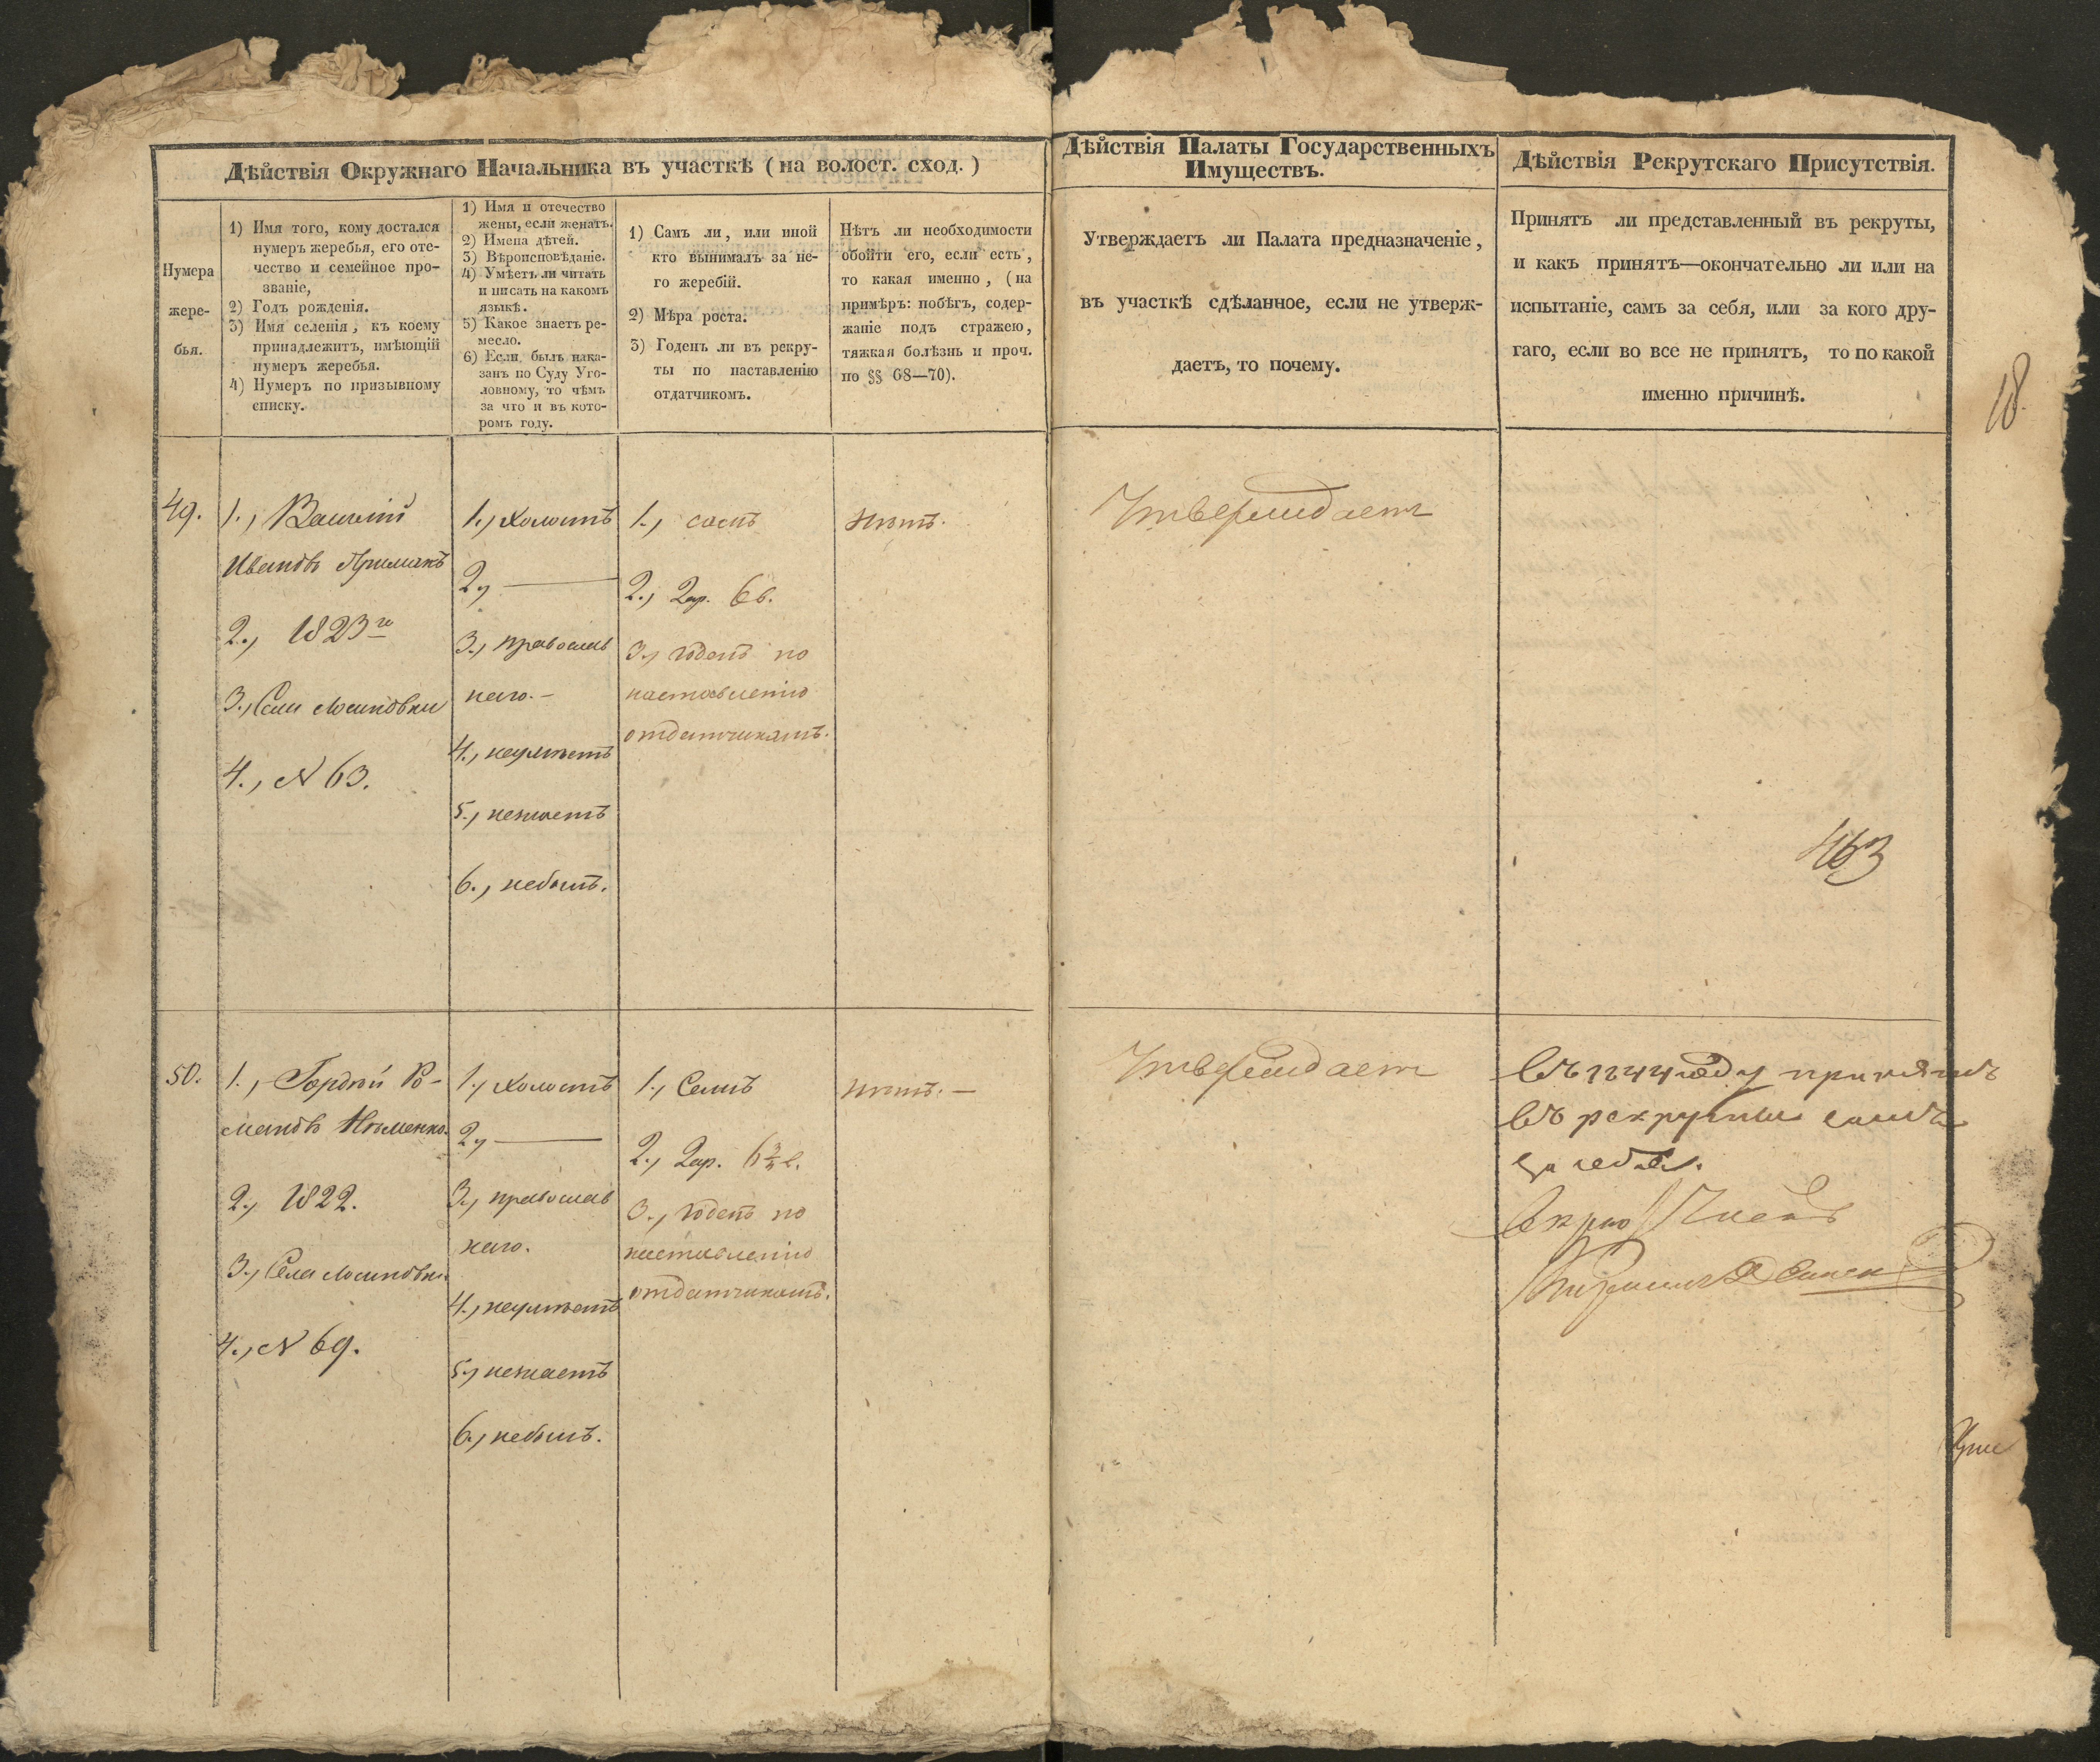 Дѣйствія Окружнаго Начальника въ участкѣ (на волост. сход.)
Нумера
жере-
бья.
1) Имя того, кому достался
нумеръ жеребья, его оте-
чество и семейное про-
званіе,
2) Годъ рожденія.
3) Имя селенія, къ коему
принадлежитъ, имѣющій
нумеръ жеребья.
4) Нумеръ по призывному
списку.
1) Имя и отечество
жены, если женатъ.
2) Имена дѣтей.
3) Вѣроисповѣданіе.
4) Умѣетъ ли читать
и писать на какомъ
языкѣ.
5) Какое знаетъ ре-
месло.
6) Если былъ нака-
занъ по Суду Уго-
ловному, то чѣмъ
за что и въ кото-
ромъ году.
1) Самъ ли, или иной
кто вынималъ за не-
го жеребій.
2) Мѣра роста.
3) Годенъ ли въ рекру-
ты по наставленію
отдатчикомъ.
Нѣтъ ли необходимости
обойти его, если есть,
то какая именно, (на
примѣръ: побѣгъ, содер-
жаніе подъ стражею,
тяжкая болѣзнь и проч.
по §§ 68—70).
Дѣйствія Палаты Государственныхъ
Имуществъ.
Утверждаетъ ли Палата предназначеніе,
въ участкѣ сдѣланное, если не утверж-
даетъ, то почему.
Дѣйствія Рекрутскаго Присутствія.
Принятъ ли представленный въ рекруты,
и какъ принятъ—окончательно ли или на
испытаніе, самъ за себя, или за кого дру-
гаго, если во все не принятъ, то по какой
именно причинѣ.
18.
49.
1., Василій
Ивановъ Примакъ
2., 1823го
3., Села Осиповки
4., N 63.
1., Холостъ
2., —
3., православ
наго. –
4., неумѣетъ
5., незнаетъ
6., небылъ.
1., самъ
2., 2ар. 6в.
3., годенъ по
наставленію
отдатчикамъ.
Нѣтъ.
Утверждаетъ
463
50.
1., Гордѣй Ро-
мановъ Науменко.
2., 1822.
3., Села Осиповки
4., N 69.
1., Холостъ
2., —
3., православ
наго.
4., неумѣетъ
5., незнаетъ
6., небылъ.
1., Самъ
2., 2ар. 6 3/4 в.
3., годенъ по
наставленію
отдатчикамъ.
Нѣтъ. —
Утверждаетъ
Въ 1844 году принятъ
въ рекруты самъ
за себя.